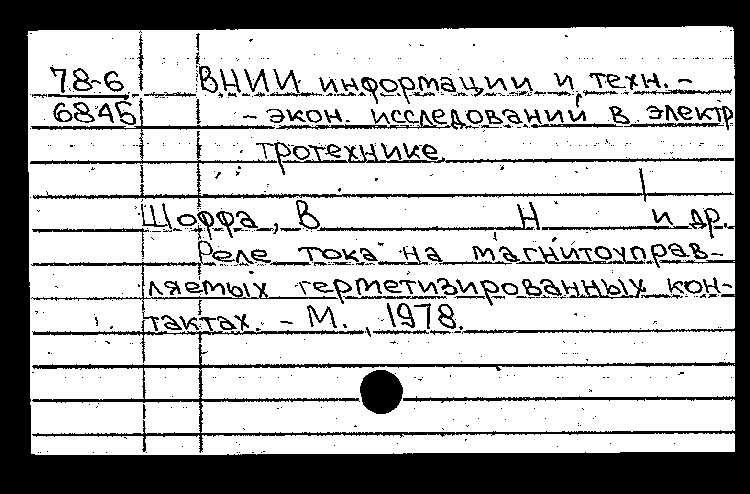 78-6 ВНИИ информации и техн.-
6845 - экон. исследований в электр
тротехнике.
Шоффа, В Н и др.
Реле тока на магнитоуправ-
ляемых герметизированных кон-
тактах. - М., 1978.